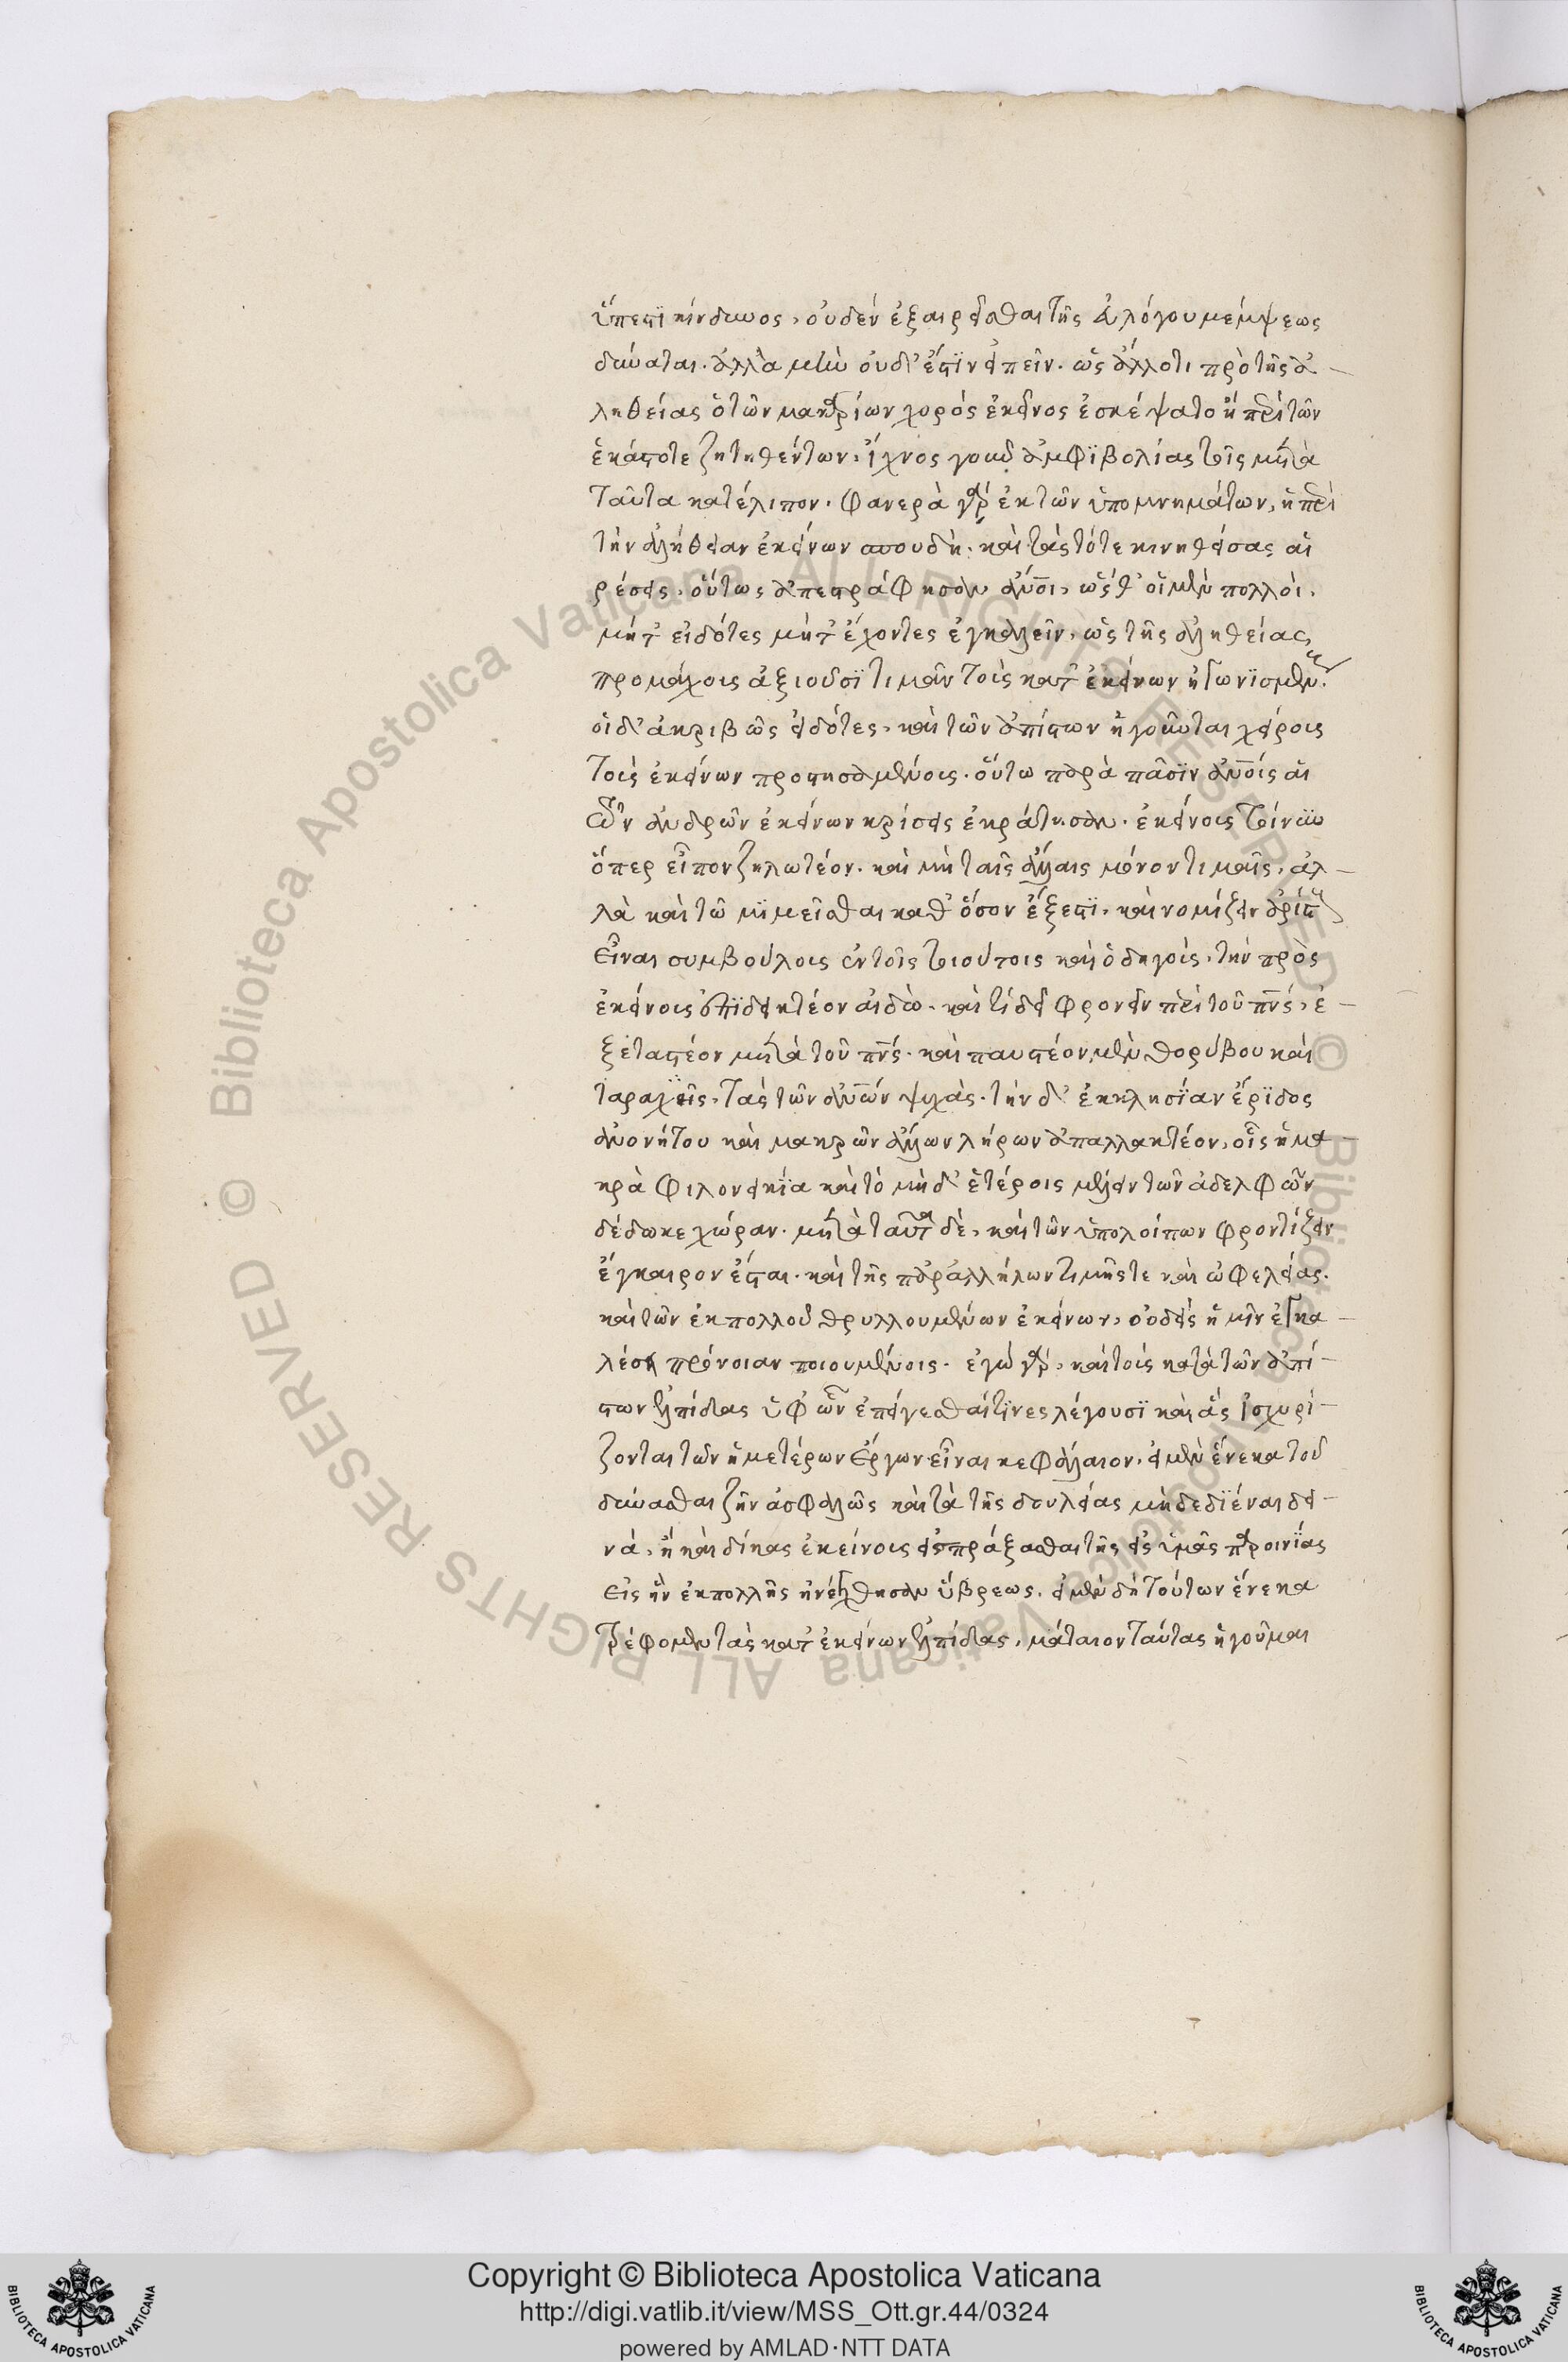 ὕπεστι κίνδυνος, οὐδὲν ἐξαιρεῖσθαι τῆς ἀλόγου μέμψεως
δύναται. ἀλλὰ μὴν οὐδ' ἔστιν εἰπεῖν. ὡς ἄλλό τι πρὸ τῆς ἀ-
ληθείας ὁ τῶν μακαρίων χορὸς ἐκεῖνος ἐσκέψατο ἢ περὶ τῶν
ἑκάστοτε ζητηθέντων. ἴχνος γοῦν ἀμφιβολίας τοῖς μετὰ
ταῦτα κατέλιπον. φανερὰ γὰρ ἐκ τῶν ὑπομνημάτων, ἡ περὶ
τὴν ἀλήθειαν ἐκείνων σπουδή. καὶ τὰς τότε κινηθείσας αἱ
ρέσεις. οὕτως ἀπεστράφησαν ἅπασι, ὥσθ' οἱ μὲν πολλοὶ.
μήτ' εἰδότες μήτ' ἔχοντες ἐγκαλεῖν, ὡς τῆς ἀληθείας
προμάχοις ἀξιοῦσι τιμᾶν τοὺς κατ' ἐκείνων ἠγωνισμένους.
οἱ δ' ἀκριβῶς εἰδότες, καὶ τῶν ἀπίστων ἡγοῦνται χείροις
τοὺς ἐκείνων προστησαμένους. οὕτω παρὰ πᾶσιν αὐτοῖς αἱ
τῶν ἀνδρῶν ἐκείνων κρίσεις ἐκράτησαν. ἐκείνοις τοίνυν
ὅπερ εἶπον ζηλωτέον. καὶ μὴ ταῖς ἄλλαις μόνον τιμαῖς, ἀλ-
λὰ καὶ τῶ μιμεῖσθαι καθ' ὅσον ἔξεστι. καὶ νομίζειν ἀρίστους
εἶναι συμβούλοις ἐν τοῖς τοιούτοις καὶ ὁδηγοὺς, τὴν πρὸς
ἐκείνοις ἐπιδεικτέον αἰδῶ. καὶ τί δεῖ φρονεῖν περὶ τοῦ πνς, ἐ-
ξεταστέον μετὰ τοῦ πνς. καὶ παυστέον μὲν θορύβου καὶ
ταραχῆς, τὰς τῶν αὐτῶν ψυχὰς. τὴν δ' ἐκκλησίαν ἔριδος
ἀνονήτου καὶ μακρῶν ἄλλων λήρων ἀπαλλακτέον, οἷς ἡ μα-
κρὰ φιλονεικία καὶ τὸ μὴ δ' ἑτέροις μέλειν τῶν ἀδελφῶν
δέδωκε χώραν. μετὰ ταῦτα δὲ, καὶ τῶν ὑπολοίπων φροντίζειν
ἔγκαιρον ἔσται. καὶ τῆς παρ' ἀλλήλων τιμῆς τε καὶ ὠφελείας.
καὶ τῶν ἐκ πολλοῦ θρυλλουμένων ἐκείνων, οὐδεὶς ἡμῖν ἐγκα-
λέσει πρόνοιαν ποιουμένοις. ἐγὼ γὰρ, καὶ τοὺς κατὰ τῶν ἀπί-
στων ἐλπίδας ὑφ' ὧν ἐπείγεσθαί τινες λέγουσι καὶ ἃς ἰσχυρί-
ζονται τῶν ἡμετέρων ἔργων εἶναι κεφάλαιον. εἰ μὲν ἕνεκα τοῦ
δύνασθαι ζῆν ἀσφαλῶς καὶ τὰ τῆς δουλείας μὴ δεδιέναι δει-
νά, ἢ καὶ δίκας ἐκείνοις εἰσπράξασθαι τῆς εἰς ἡμᾶς παροινίας
εἰς ἣν ἐκ πολλῆς ἠνέχθησαν ὕβρεως. εἰ μὲν δὴ τούτων ἕνεκα
τρέφομεν τὰς κατ' ἐκείνων ἐλπίδας, μάταιον ταύτας ἡγοῦμαι
Copyright © Biblioteca Apostolica Vaticana
http://digi.vatlib.it/view/MSS_Ott.gr.44/0324
powered by AMLAD·NTT DATA
BIBLIOTECA APOSTOLICA VATICANA
BIBLIOTECA APOSTOLICA VATICANA
© Biblioteca Apostolica Vaticana ALL RIGHTS RESERVED © Biblioteca Apostolica Vaticana ALL RIGHTS RESERVED